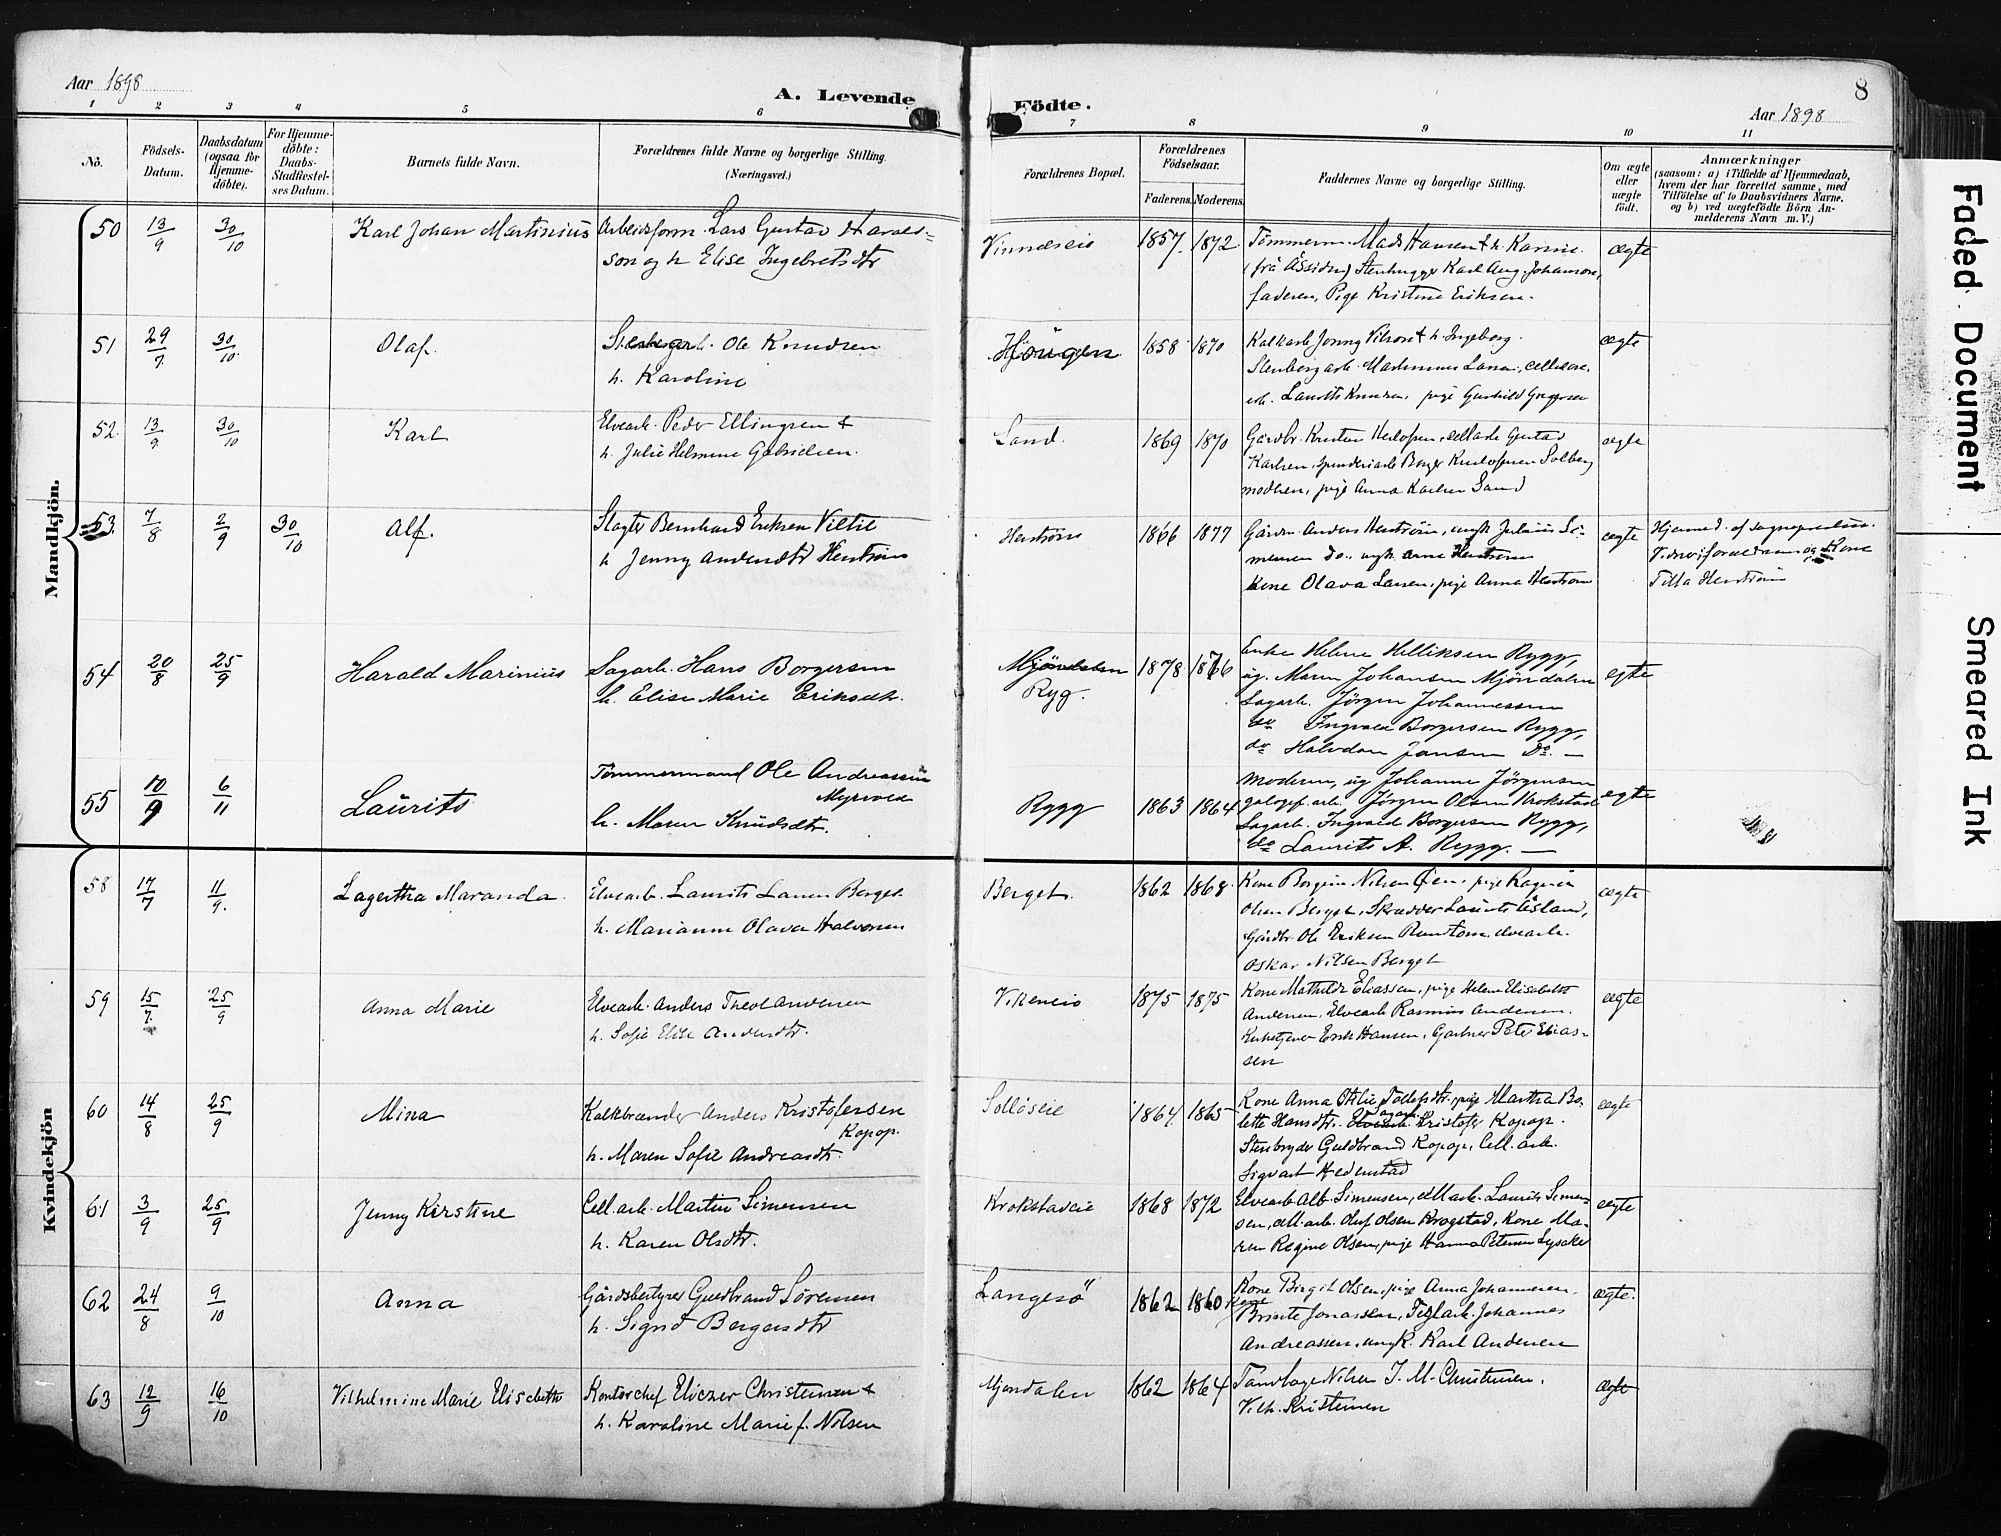 Aar 1898
A. Levende Födte.
8
Aar 1898
1 2 3 4 5 6 7 8 9 10 11
No.
Födsels-
Datum.
Daabsdatum
(ogsaa for
Hjemme-
döbte).
For Hjemme-
döbte:
Daabs-
Stadfæstel-
ses Datum.
Barnets fulde Navn.
Forældrenes fulde Navne og borgerlige Stilling.
(Næringsvei.)
Forældrenes Bopæl.
Forældrenes
Födselsaar.
Faderens. Moderens.
Faddernes Navne og borgerlige Stilling.
Om ægte
eller
uægte
födt.
Anmærkninger
(saasom: a) i Tilfælde af Hjemmedaab,
hvem der har forrettet samme, med
Tilföielse af to Daabsvidners Navne,
og b) ved uægtefödte Börn An-
melderens Navn m. V.)
Mandkjön.
50 13/9 30/10 Karl Johan Martinius Arbeidsform. Lars Gustav Harald-
son og h. Elise Ingebretsdtr
Vinnæseie 1857. 1872. Tömmerm. Mads Hansen & h. Karine
(frå Åssiden) Stenhugger Karl Aug. Johansen,
faderen, Pige Kristine Eriksen.
ægte
51 29/7 30/10 Olaf. Ole Knudsen
h. Karoline
Hjougen 1858 1870 Kalkarb. h. Ingeborg.
Stenbergarb. Larsen, cellulose.
arb. Laurits Knudsen, pige Gunhild
ægte
52 13/9 30/10 Karl Elvearb. Peder Ellingsen &
h. Julie Helmine Gabrielsen.
Sand. 1869 1870 Gårdbr. cellarb. Gustav
Karlsen, Borger Solberg
moderen, pige Anna Karlsen Sand
ægte
53. 7/8 2/9 30/10 Alf. Slagter Bernhard Eriksen
h. Jenny Andersdtr Henstrøm
Henstrøm 1866 1877 Gårdm. Anders Henstrøm, ungk. Julius Si-
mensen do., ungk. Arne Henstrøm
kone Olava Larsen, pige Anna Henstrøm
ægte Hjemmed. af sognepresten.
forældrene og Kone
Henstrøm
54 20/8 25/9 Harald Marinius Sagarb. Hans Borgersen
h. Elise Marie Eriksdtr.
Mjöndalen
Ryg. 1878 1876 Enke Helene Helliksen Rygg,
ug. Maren Johansen Mjöndalen
Sagarb. Jörgen Johannessen
do Ingvald Borgersen Rygg,
do Halvdan Jansen Do. —
ægte
55 10/9 6/11 Laurits Tömmermand Ole Andreassen
Myrvold
h. Maren Knudsdtr.
Rygg 1863 1864 Moderen, ug Johanne Jörgensen
arb. Jörgen Olsen Krokstad
Sagarb. Ingvald Borgersen Rygg,
do Laurits A. Rygg. —
ægte
Kvindekjön
58 17/7 11/9. Lagertha Maranda. Elvearb. Laurits Larsen Berget
h. Marianne Olava Halvorsen
Berget. 1862 1868. Kone Borgine Nilsen Öien, pige Ragna
Olsen Berget, Skrædder Laurits Åsland,
Gårdbr. Ole Eriksen elvearb.
Oskar Nilsen Berget
ægte
59 15/7. 25/9 Anna Marie Elvearb. Anders Theod. Andersen
h. Sofie Elise Andersdtr.
Vikeneie 1875 1875 Kone Mathilde Eliassen, pige Helene Elisabeth
Andersen, Elvearb. Rasmus Andersen.
Kirketjener Erik Hansen, Gartner Peter Elias-
sen
ægte
60 14/8 25/9 Mina Kalkbrænder Anders Kristofersen
Kopop.
h. Maren Sofie Andreasdtr.
Solløseie 1864. 1865 Kone Anna Otilie Tollefsdtr, pige Martha Bo-
lette Hansdtr. Elvearb. Sagarb. Kristofer Kopop.
Stenbryder Guldbrand Kopop, Cell. arb.
Sigvart Hedenstad
ægte
61 3/9 25/9 Jenny Kirstine Cell. arb. Martin Simensen
h. Karen Olsdtr.
Krokstadeie 1868 1872 Elvearb. Alb. Simensen, cell. arb. Laurits Simen-
sen, cell. arb. Oluf Olsen Krogstad, Kone Ma-
ren Regine Olsen, pige Hanna Petersen Lysaker
ægte
62 24/8 9/10 Anna Gårdsbestyrer Guldbrand Sørensen
h. Sigrid Bergersdtr
Langesö 1862 1860 Kone Birgit Olsen, pige Anna Johannesen.
Kone Birgite Jonassen, Teglarb. Johannes
Andreassen, ungk. Karl Andersen
ægte.
63 12/9 16/10 Vilhelmine Marie Elisabeth Kontorchef Eliezer Christensen &
h. Karoline Marie f. Nilsen
Mjøndalen 1862 1864 Tandlæge Nilsen J. M. Christensen.
Vilh. Kristensen
ægte
Faded Document
Smeared Ink